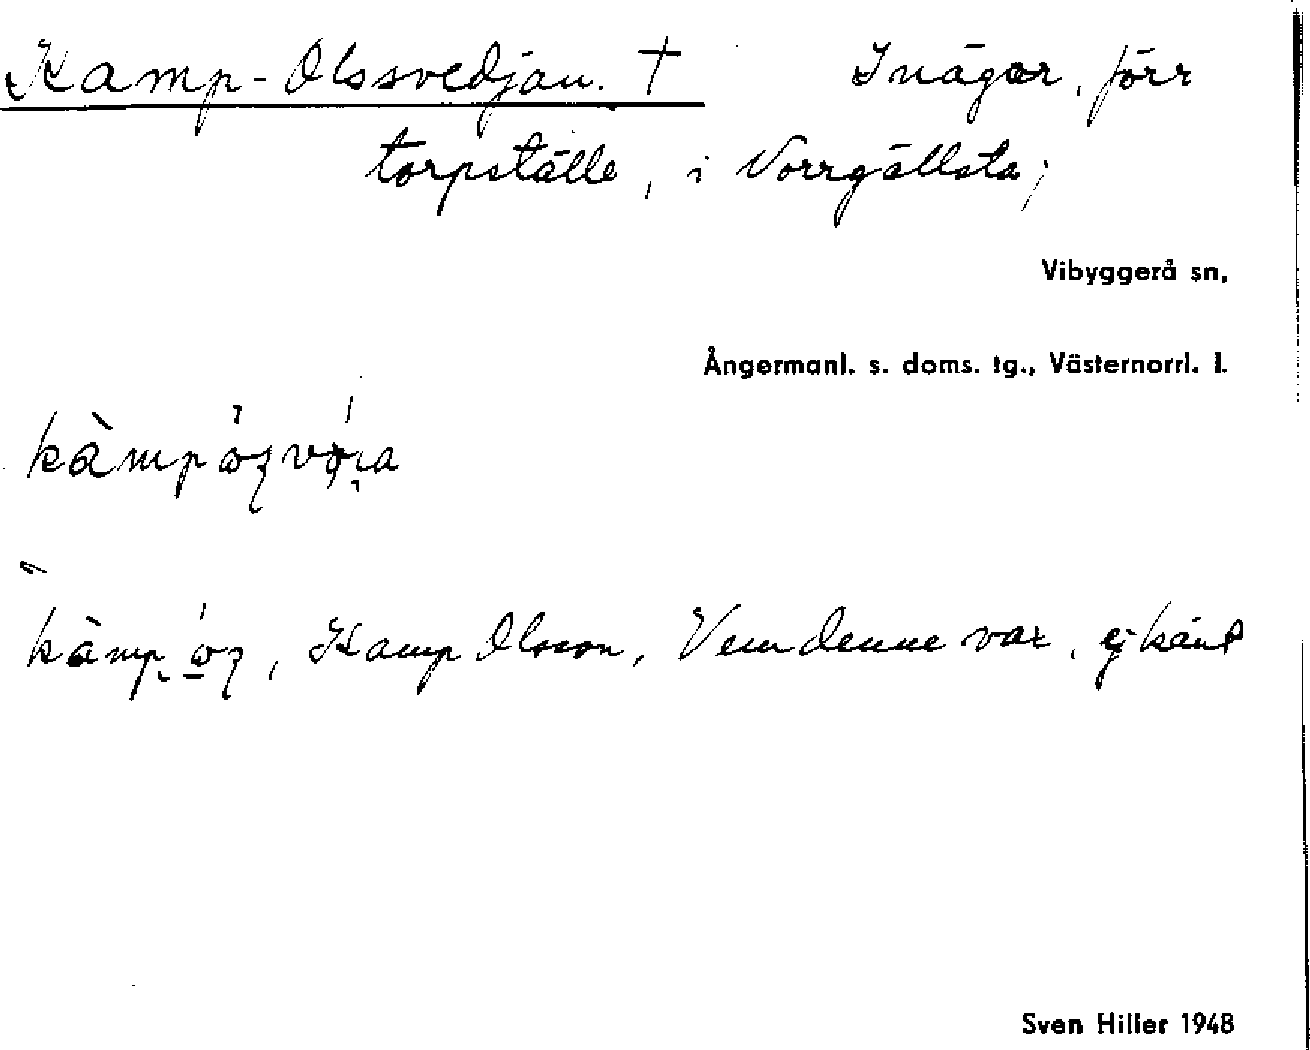 Kamp-Olssvedjan. † Inägor, förr
torpställe, i Norrgällsta;
Vibyggerå sn,
Ångermanl. s. doms. tg., Västernorrl. l.
kamp Olsson, Vem denne var, ej känt
Sven Hiller 1948